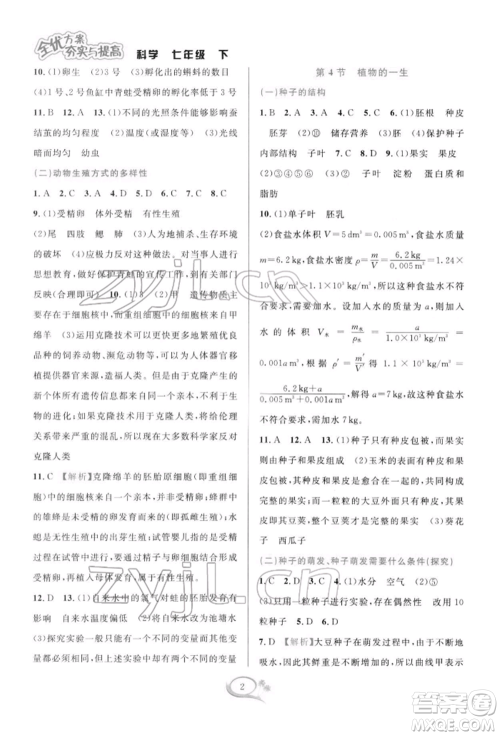 全优方案
夯实与提高
科学 七年级 下
10.(1)卵生 (2)3号 (3)孵化出的蝌蚪的数目
(4)1、2号鱼缸中青蛙受精卵的孵化率低于3号
11.B 12.A 13.(1)不同的光照条件能够影响蚕
结茧的均匀度 (2)温度(或湿度等) (3)光线
暗而均匀 幼虫
(二)动物生殖方式的多样性
1.A 2.C 3.A 4.D 5.D 6.D 7.A 8.D
9.(1)受精卵 体外受精 有性生殖
(2)尾 四肢 鳃 肺 (3)人为地捕杀、水域环境
的破坏 (4)应极力反对捕杀青蛙、从身边小事做
起保护环境和青蛙的受精、产卵场所等,言之有理
即可(合理即可) 10.(1)B (2)甲 遗传物质主
要存在于细胞核中,而克隆羊的细胞核来自甲
绵羊 (3)如:利用克隆技术可用来大量繁殖有优
良品质的动物、濒危动物等,可以为人体器官移
植提供器官来源,因为克隆产生的
新个体所有遗传信息都来自母体,有利于保持
遗传的稳定性等 (4)不同意,目前克隆技术还不
完善;如果克隆技术用于人类本身,将给人类带来
极大的混乱,所以现在大多数科学家反对
克隆人类
11.C 【解析】克隆绵羊的胚胎原始细胞(即重组细
胞)中的细胞核来自未受精的卵细胞;蜂群中
的雄蜂是由未受精的卵发育而来的,属于孤雌生殖;水
螅是无性生殖中的出芽生殖;由试管婴儿
技术产生的后代,是精子和卵细胞在试管中进行
受精,再植入母体子宫内发育而来的,属于有性生殖
12.(1)自来水中的氯对鱼的胚胎发育有影响
吗? (2)自来水温度应与凉开水、河水、池塘水温
度相等 (3)探究实验一般为只有一个不同的变量而其他变
量相同,但上述实验中却存在两个不同的变量,所
以无法得出结论
第4节 植物的一生
(一)种子的结构
1.B 2.A 3.A 4.D 5.C 6.(1)胚根 种皮
胚芽 (2)⑩ 储存营养 (3)D (4)保护种子
内部结构 子叶 7.C 8.D 9.(1)果皮
(2)③④⑤⑥ (3)子叶 淀粉 蛋白质和
脂肪
10.(1)单子叶 胚乳
(2)食盐水体积V=5dm³=0.005m³,食盐水质
量m=6.2kg,ρ=m/V=6.2kg/0.005m³=1.24×
10³kg/m³>1.1×10³kg/m³,所以食盐水不符合
要求,需要加水。设加入水的质量为a,则加
入水的体积V水=m水/ρ水=a/(1.0×10³kg/m³)=
0.001am³,根据ρ'=m'/V'得 1.1×10³kg/m³=
(6.2kg+a)/(0.005m³+0.001am³),解得a=7kg,原食盐水
不符合要求,需加水7kg。
11.A 12.A 13.(1)种子只有种皮而没有果皮,
因此种子和果皮组成;(2)玉米的表面
已包括果皮和种皮,也就是一粒粒的玉米其实是
一个完整的果实;而一粒粒的大豆外面只有
种皮,没有果皮,整个豆荚才是一个果实 (3)葵花
子 西瓜子
(二)种子的萌发、种子萌发需要什么条件(探究)
1.C 2.D 3.C 4.A 5.(1)水分 空气 (2)D
(3)只用一粒种子实验,存在偶然性 改用10粒
种子实验 6.D
7.D 【解析】大豆种子在萌发过程中,由于不断地
吸水,因此其鲜重是不断增加的,而萌发过程要不断
2